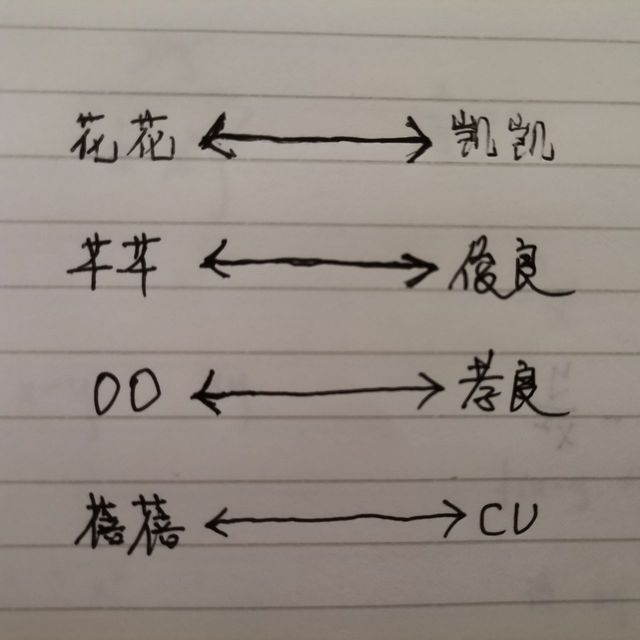 花花 ↔ 凯凯
芊芊 ↔ 俊良
OO ↔ 孝良
蓓蓓 ↔ CU